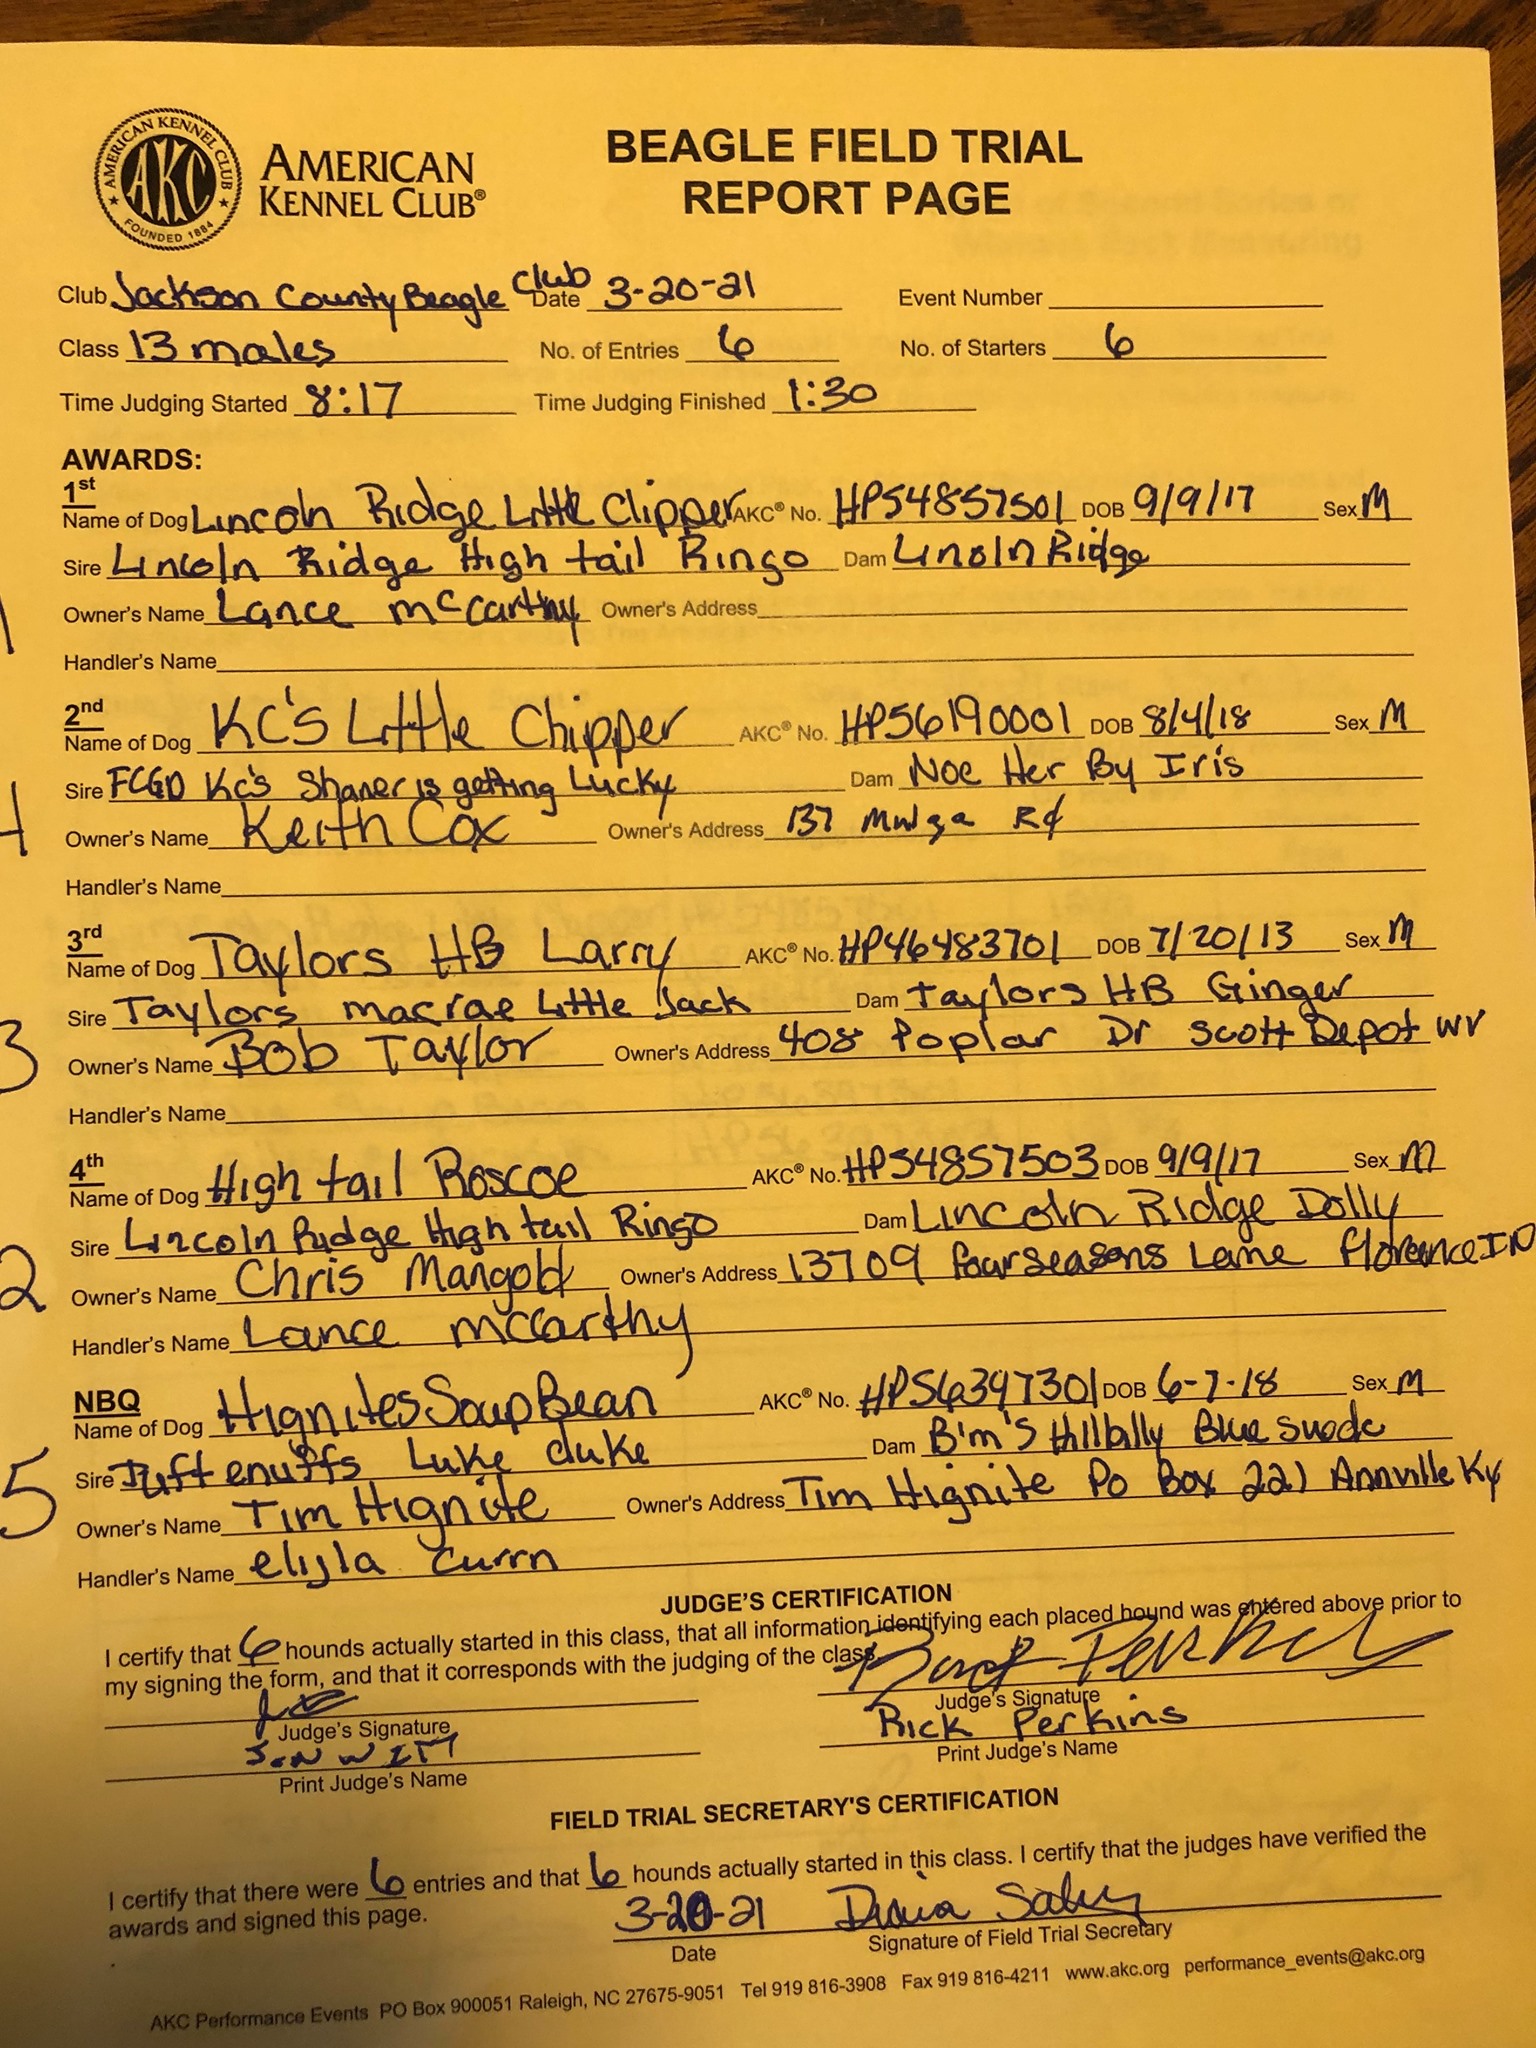 AMERICAN KENNEL CLUB
AKC
FOUNDED 1884
AMERICAN
KENNEL CLUB®
BEAGLE FIELD TRIAL
REPORT PAGE
Club Jackson County Beagle Club Date 3-20-21 Event Number
Class 13 males No. of Entries 6 No. of Starters 6
Time Judging Started 8:17 Time Judging Finished 1:30
AWARDS:
1st
Name of Dog Lincoln Ridge Little Clipper AKC® No. HP54857501 DOB 9/9/17 Sex M
Sire Lincoln Ridge High tail Ringo Dam Linoln Ridge
Owner's Name Lance McCarthy Owner's Address
1
Handler's Name
2nd
Name of Dog KC's Little Chipper AKC® No. HP56190001 DOB 8/4/18 Sex M
Sire FCGD Kc's Shaner is getting Lucky Dam Noe Her By Iris
4 Owner's Name Keith Cox Owner's Address 137 Rd
Handler's Name
3rd
Name of Dog Taylors HB Larry AKC® No. HP46483701 DOB 7/20/13 Sex M
Sire Taylors macrae Little Jack Dam Taylors HB Ginger
3 Owner's Name Bob Taylor Owner's Address 408 Poplar Dr Scott Depot WV
Handler's Name
4th
Name of Dog High tail Roscoe AKC® No. HP54857503 DOB 9/9/17 Sex M
Sire Lincoln Ridge High tail Ringo Dam Lincoln Ridge Dolly
2 Owner's Name Chris Mangold Owner's Address 13709 four seasons Lane Florence IN
Handler's Name Lance McCarthy
NBQ
Name of Dog Hignites Soup Bean AKC® No. HP56397301 DOB 6-7-18 Sex M
Sire Tuftenuffs Luke duke Dam B'm's Hillbilly Blue Suade
5 Owner's Name Tim Hignite Owner's Address Tim Hignite Po Box 221 Annville Ky
Handler's Name
JUDGE'S CERTIFICATION
I certify that 6 hounds actually started in this class, that all information identifying each placed hound was entered above prior to
my signing the form, and that it corresponds with the judging of the class.
Judge's Signature
Print Judge's Name
Rick Perkins
Judge's Signature
Rick Perkins
Print Judge's Name
FIELD TRIAL SECRETARY'S CERTIFICATION
I certify that there were 6 entries and that 6 hounds actually started in this class. I certify that the judges have verified the
awards and signed this page.
3-20-21
Date Signature of Field Trial Secretary
AKC Performance Events PO Box 900051 Raleigh, NC 27675-9051 Tel 919 816-3908 Fax 919 816-4211 www.akc.org performance_events@akc.org